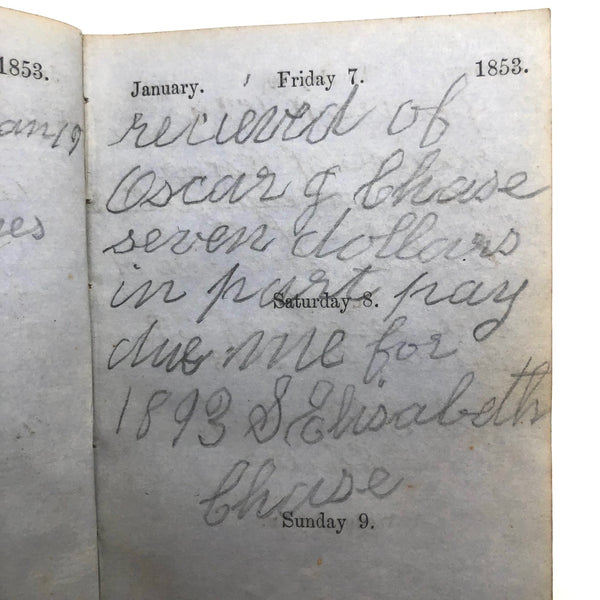 1853.
January. Friday 7. 1853.
recieved of
Oscar g Chase
seven dollars
in part pay
Saturday 8.
due me for
1893 S Elisabeth
Chase
Sunday 9.